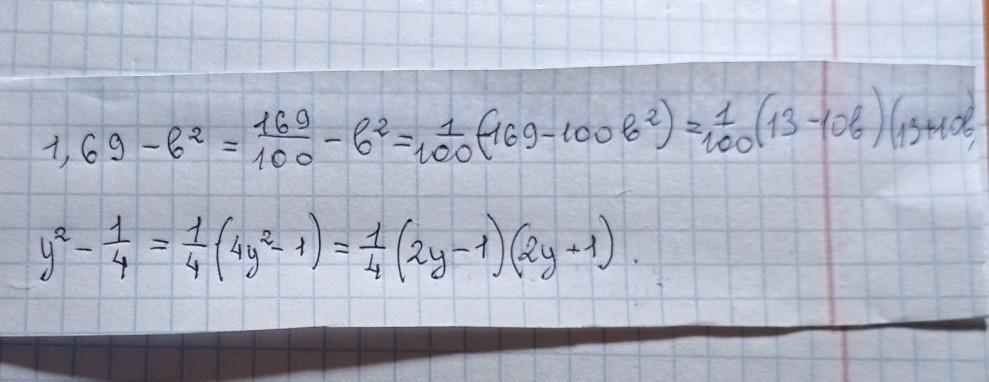 1,69 - b² = 169/100 - b² = 1/100 (169 - 100b²) = 1/100 (13 - 10b)(13 + 10b)
y² - 1/4 = 1/4 (4y² - 1) = 1/4 (2y - 1)(2y + 1).